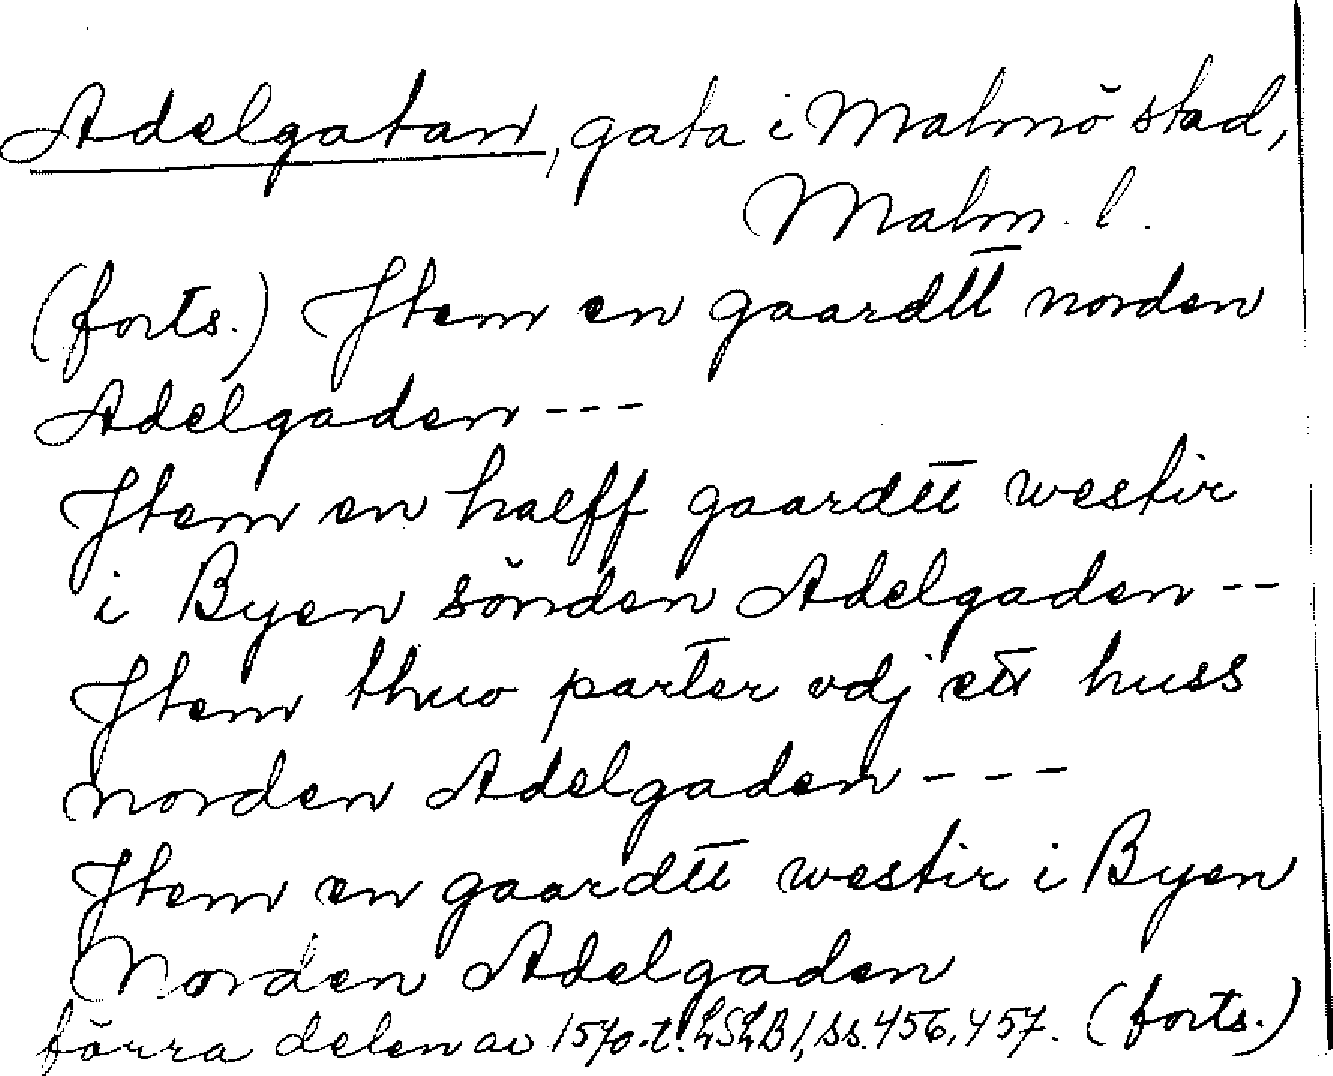 Adelgatan, gata i Malmö stad,
Malm. l.
(forts.) Jtem en gaardtt norden
Adelgaden ---
Jtem en halff gaardtt westir
i Byen sönden Adelgaden --
Jtem thuo parter vdj ett huss
norden Adelgaden ---
Jtem en gaardtt westir i Byen
Norden Adelgaden
förra delen av 1570-t. LSLB 1, ss. 456, 457. (forts.)